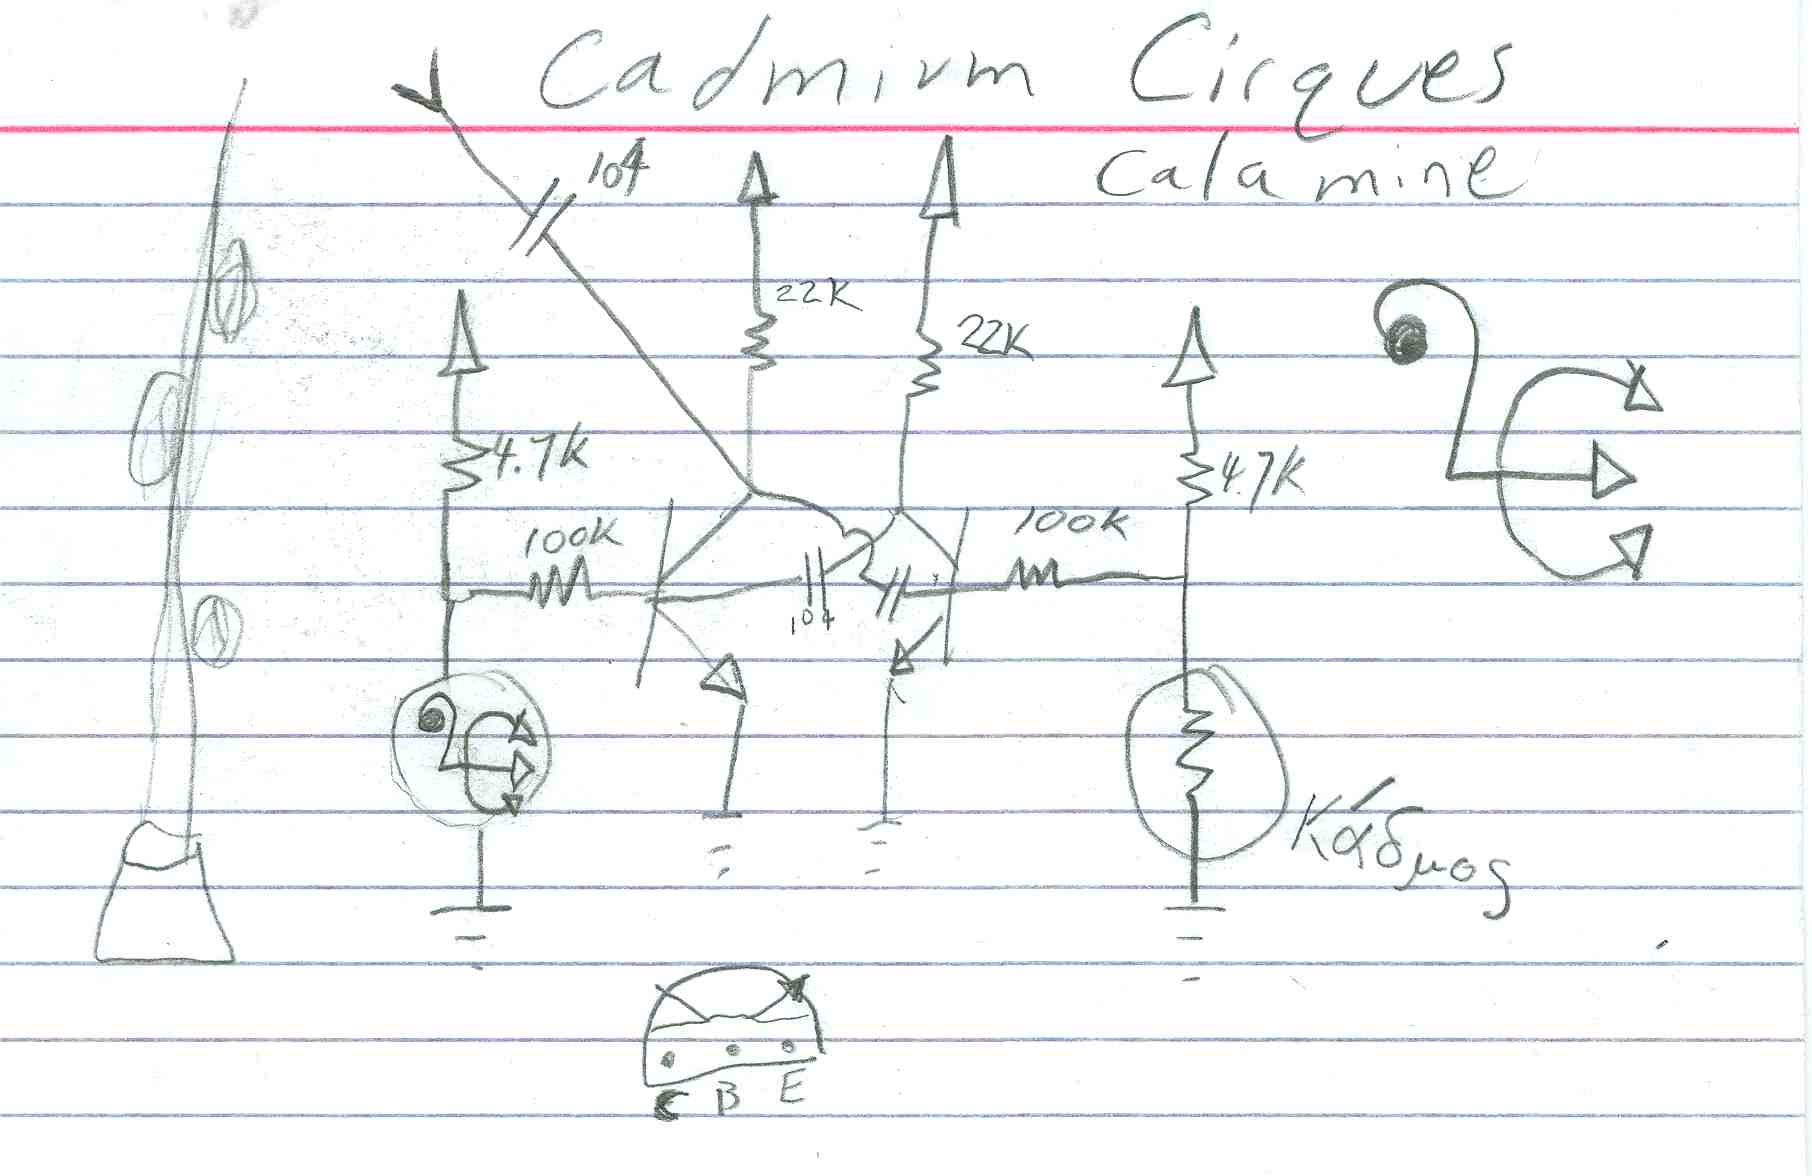 Cadmium Cirques
calamine
104
22K
22K
4.7K
4.7K
100K
100K
104
Κάδμος
C B E